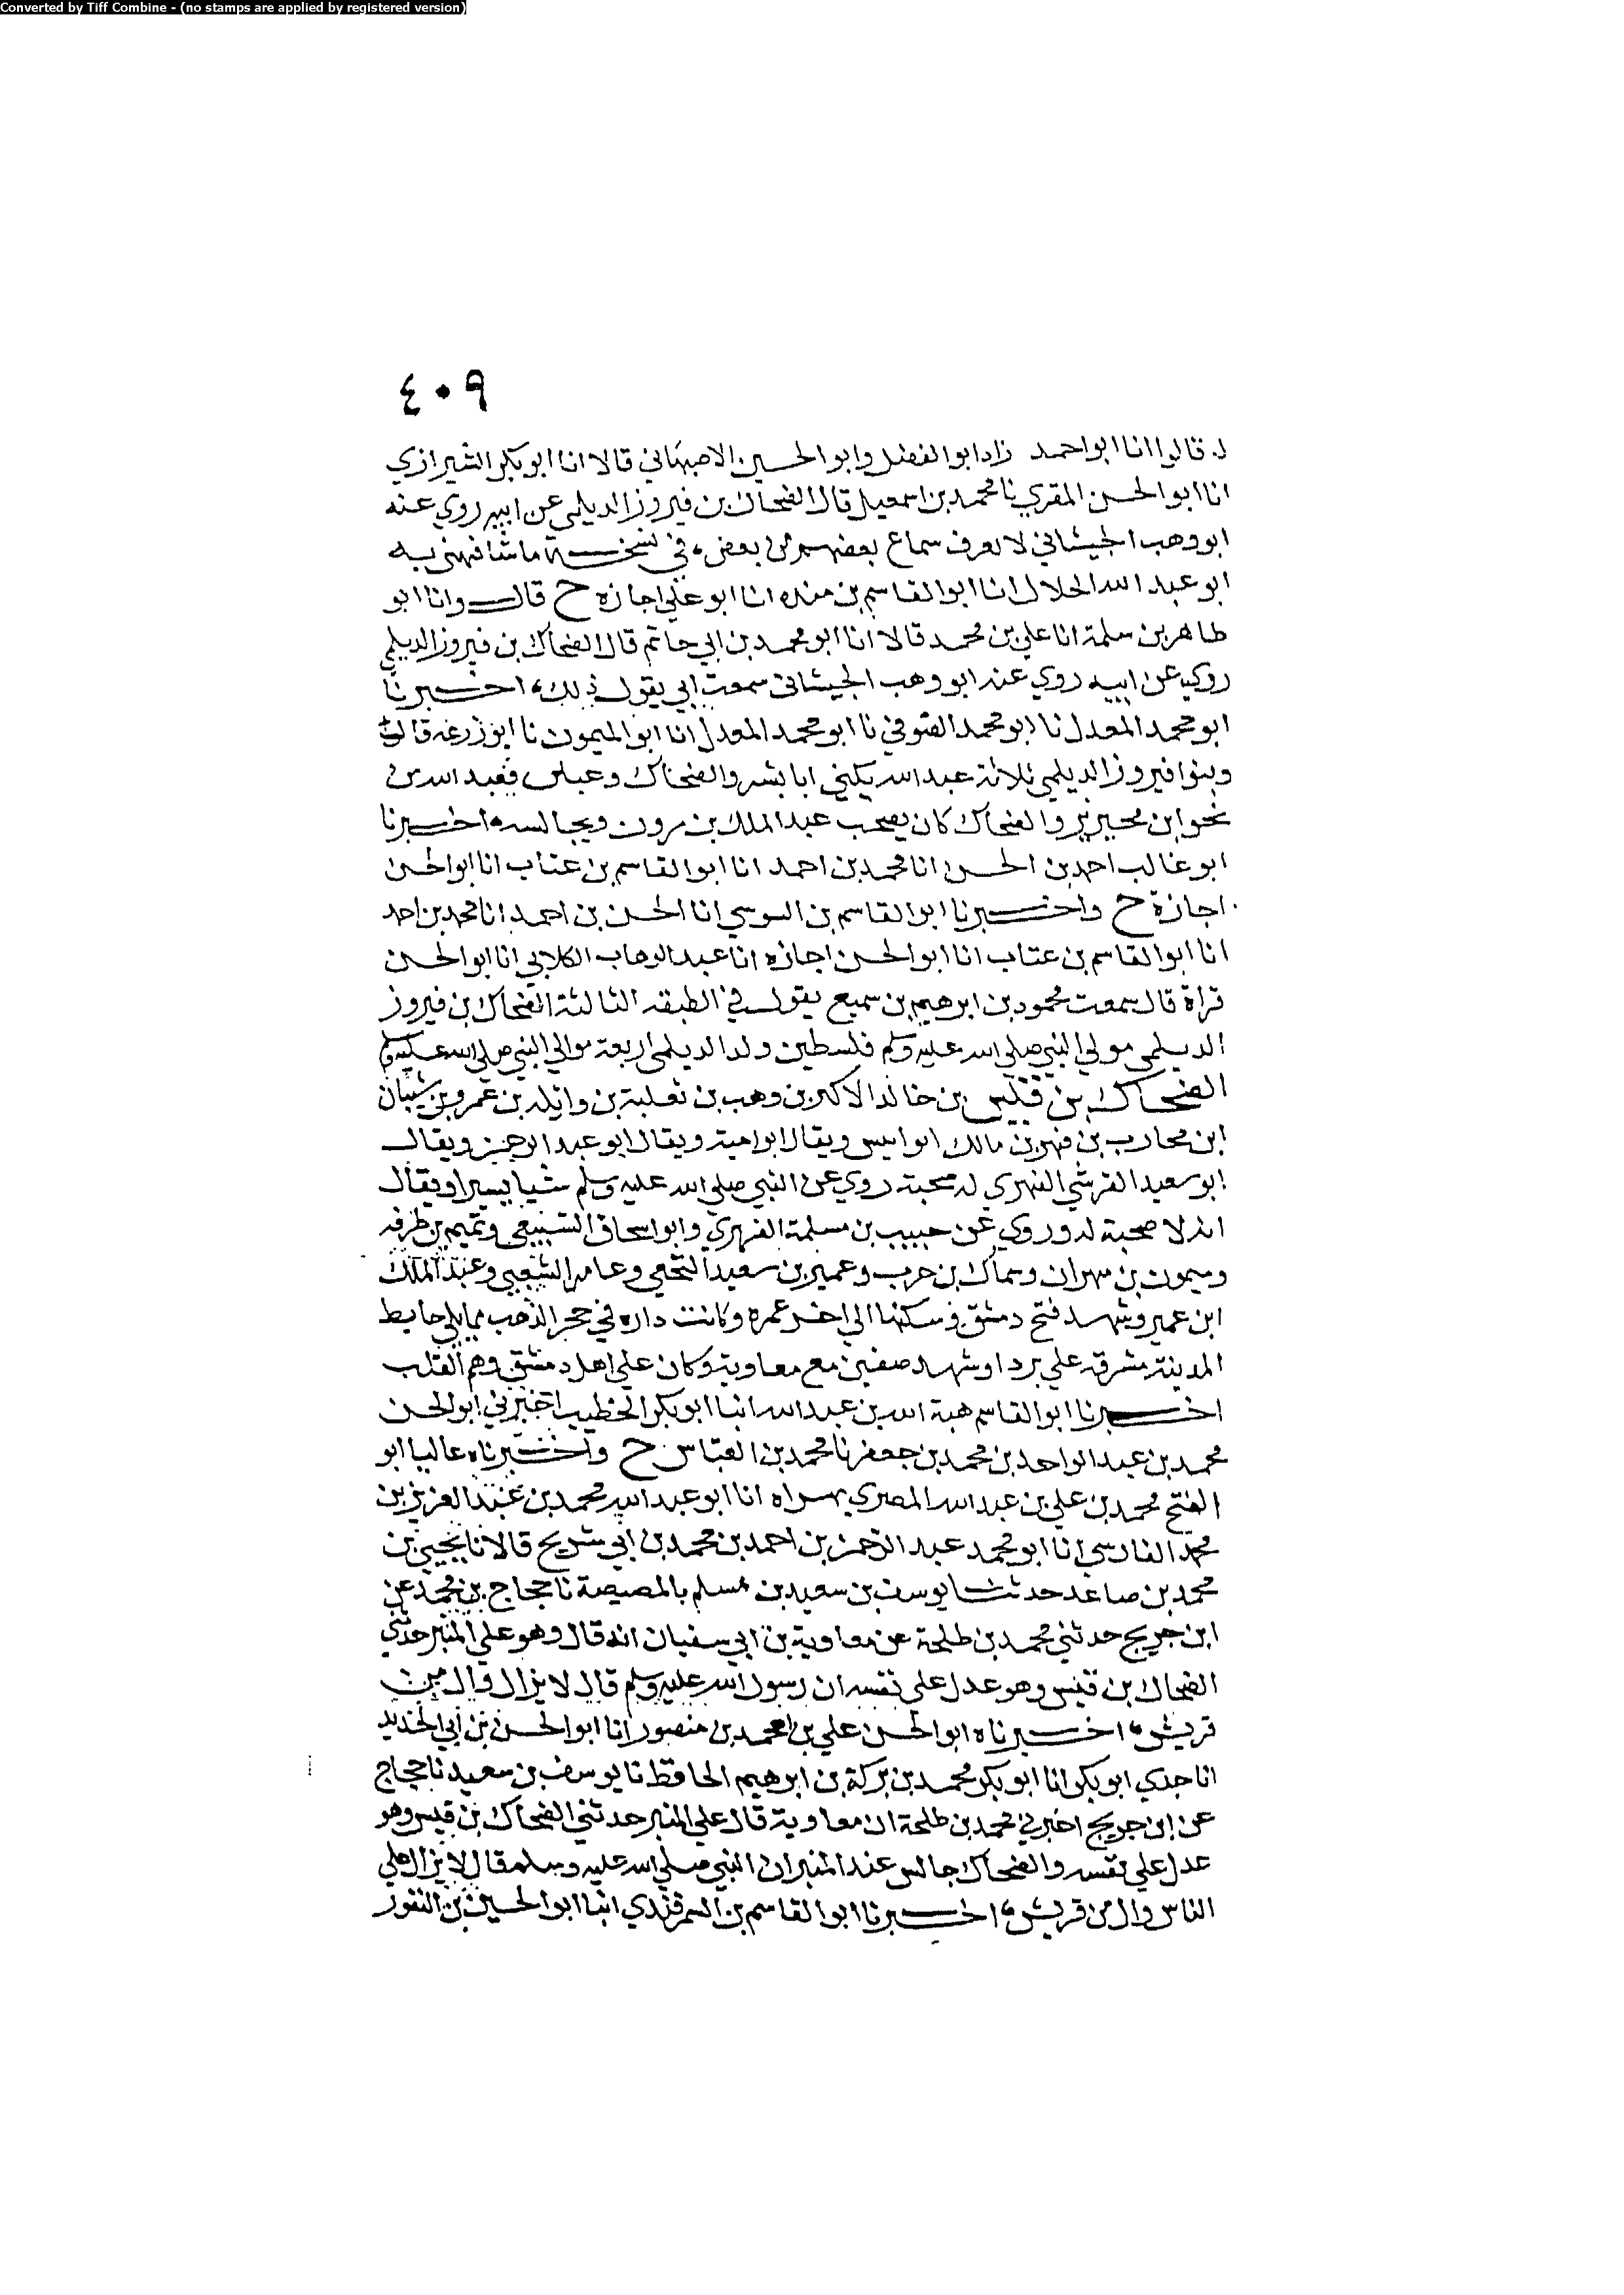 Converted by Tiff Combine - (no stamps are applied by registered version)
٤٠٩
له قالوا انا ابو احمد زاد ابو الفضل وابو الحسين الاصبهاني قالا انا ابو بكر الشيرازي
انا ابو الحسن المقري نا محمد بن اسمعيل قال الضحاك بن فيروز الديلمي عن ابيه روي عنه
ابو وهب الجيشاني لا يعرف سماع بعضهم من بعض، في نسخة ما شافهني به
ابو عبد الله الخلال انا ابو القاسم بن منده انا ابو علي اجازه ح قال وانا ابو
طاهر بن سلمة انا علي بن محمد قالا انا ابو محمد بن ابي حاتم قال الضحاك بن فيروز الديلمي
روي عن ابيه روي عنه ابو وهب الجيشاني سمعت ابي يقول ذلك، اخبرنا
ابو محمد المعدل نا ابو محمد الصوفي نا ابو محمد المعدل انا ابو الميمون نا ابو زرعة قال
وبنوا فيروز الديلمي ثلاثة عبد الله يكني ابا بشر والضحاك وعياش فعبد الله من
نحو ابن محيريز والضحاك كان يصحب عبد الملك بن مرون ويجالسه، اخبرنا
ابو غالب احمد بن الحسن انا محمد بن احمد انا ابو القاسم بن عتاب انا ابو الحسن
اجازة ح واخبرنا ابو القاسم بن السوسي انا الحسن بن احمد انا محمد بن احمد
انا ابو القاسم بن عتاب انا ابو الحسن اجازه انا عبد الوهاب الكلابي انا ابو الحسن
قراة قال سمعت محمود بن ابرهيم بن سميع يقول في الطبقه الثالثة الضحاك بن فيروز
الديلمي مولي النبي صلي الله عليه وسلم فلسطين ولد الديلمي اربعة موالي النبي صلي الله عليه وسلم
الضحاك بن قيس بن خالد الاكبر بن وهب بن ثعلبة بن وايله بن عمرو بن شيبان
ابن محارب بن فهر بن مالك ابو انيس ويقال ابو امية ويقال ابو عبد الرحمن ويقال
ابو سعيد القرشي الفهري له صحبة روي عن النبي صلي الله عليه وسلم شيا يسيرا ويقال
انه لا صحبة له وروي عن حبيب بن مسلمة الفهري وابو اسحاق السبيعي وتميم بن طرفه
وميمون بن مهران وسماك بن حرب وعمير بن سعيد النخعي وعامر الشعبي وعبد الملك
ابن عمير وشهد فتح دمشق وسكنها الي اخر عمره وكانت داره في حجر الذهب مما يلي حايط
المدينة مشرقه علي بردا وشهد صفين مع معاوية وكان علي اهل دمشق وهم القلب
اخبرنا ابو القاسم هبة الله بن عبد الله انبا ابو بكر الخطيب اخبرني ابو الحسن
محمد بن عبد الواحد بن محمد بن جعفر نا محمد بن العباس ح واخبرناه عاليا ابو
الفتح محمد بن علي بن عبد الله المصري بهراه انا ابو عبد الله محمد بن عبد العزيز بن
محمد الفارسي انا ابو محمد عبد الرحمن بن احمد بن محمد بن ابي شريح قالا نا يحيي بن
محمد بن صاعد حدثنا يوسف بن سعيد بن مسلم بالمصيصة نا حجاج بن محمد عن
ابن جريج حدثني محمد بن طلحة عن معاوية بن ابي سفيان انه قال وهو علي المنبر حدثني
الضحاك بن قيس وهو عدل علي نفسه ان رسول الله عليه وسلم قال لا يزال وال من
قريش، اخبرناه ابو الحسن علي بن محمد بن منصور انا ابو الحسن بن ابي الحديد
انا جدي ابو بكر انا ابو بكر محمد بن بركة بن ابرهيم الحافظ نا يوسف بن سعيد نا حجاج
عن ابن جريج اخبرني محمد بن طلحة ان معاوية قال علي المنبر حدثني الضحاك بن قيس وهو
عدل علي نفسه والضحاك جالس عند المنبر ان النبي صلي الله عليه وسلم قال لا يزال علي
الناس وال من قريش، اخبرنا ابو القاسم بن السمرقندي انبا ابو الحسين بن النقور